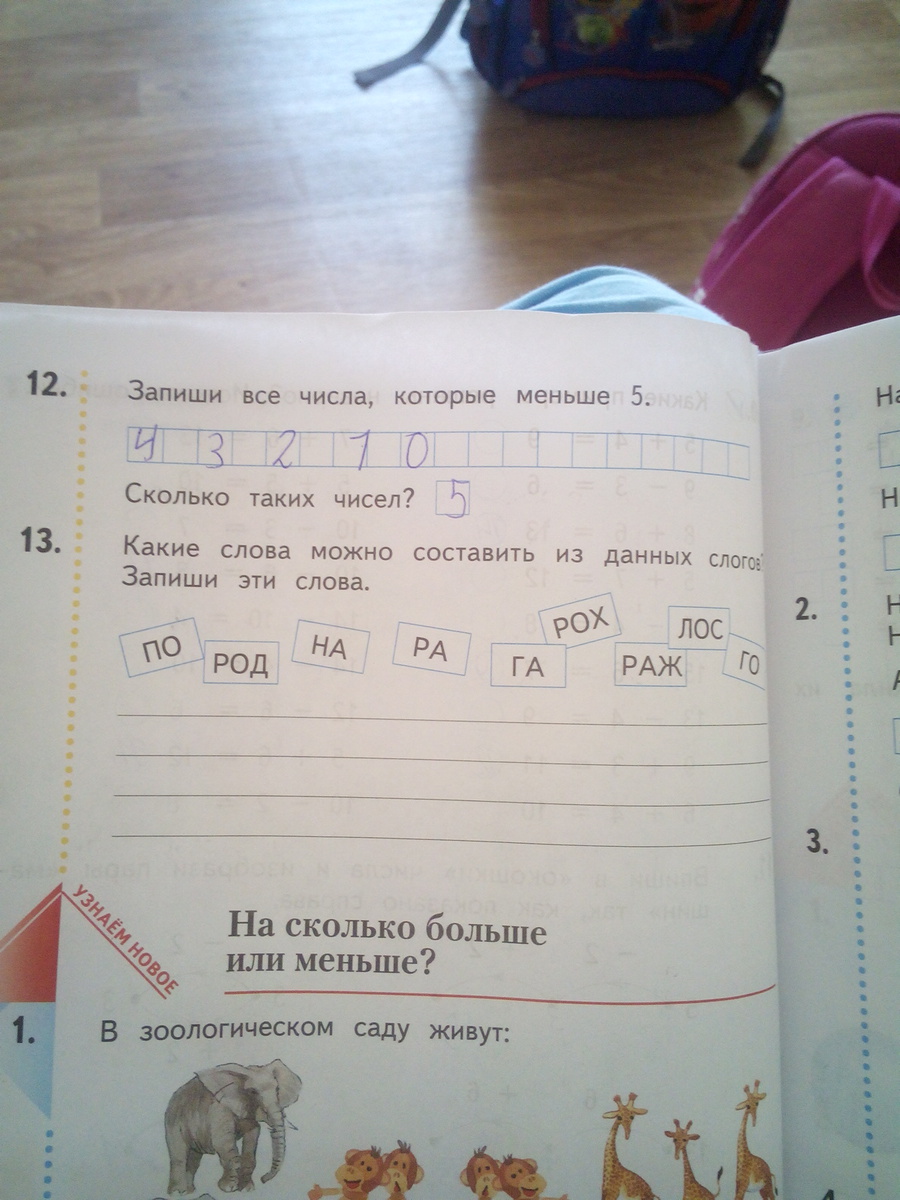 12. Запиши все числа, которые меньше 5.
4 3 2 1 0
Сколько таких чисел? 5
13. Какие слова можно составить из данных слогов?
Запиши эти слова.
ПО РОД НА РА ГА РОХ РАЖ ЛОС ГО
УЗНАЁМ НОВОЕ
На сколько больше
или меньше?
1. В зоологическом саду живут:
На
Н
2. Н
Н
3.